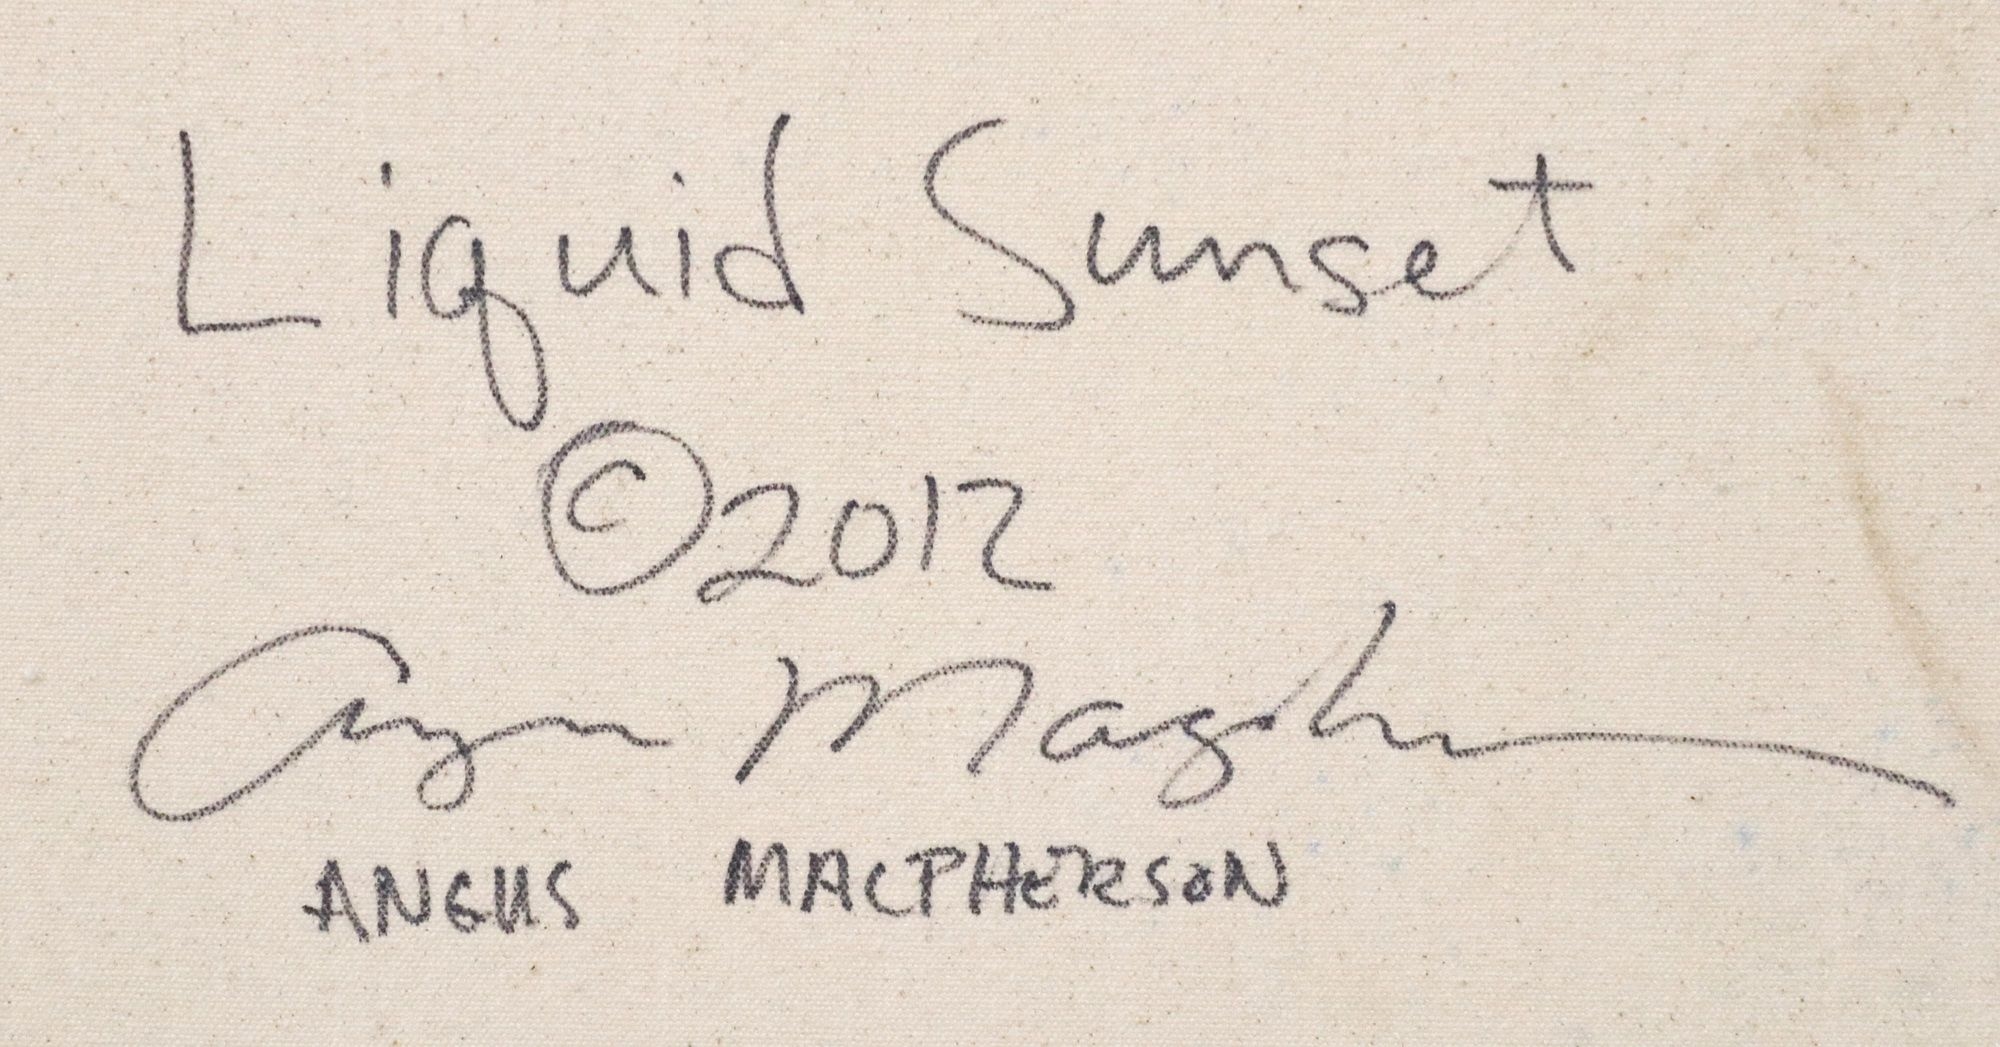 Liquid Sunset
©2012
Angus Macpherson
ANGUS MACPHERSON